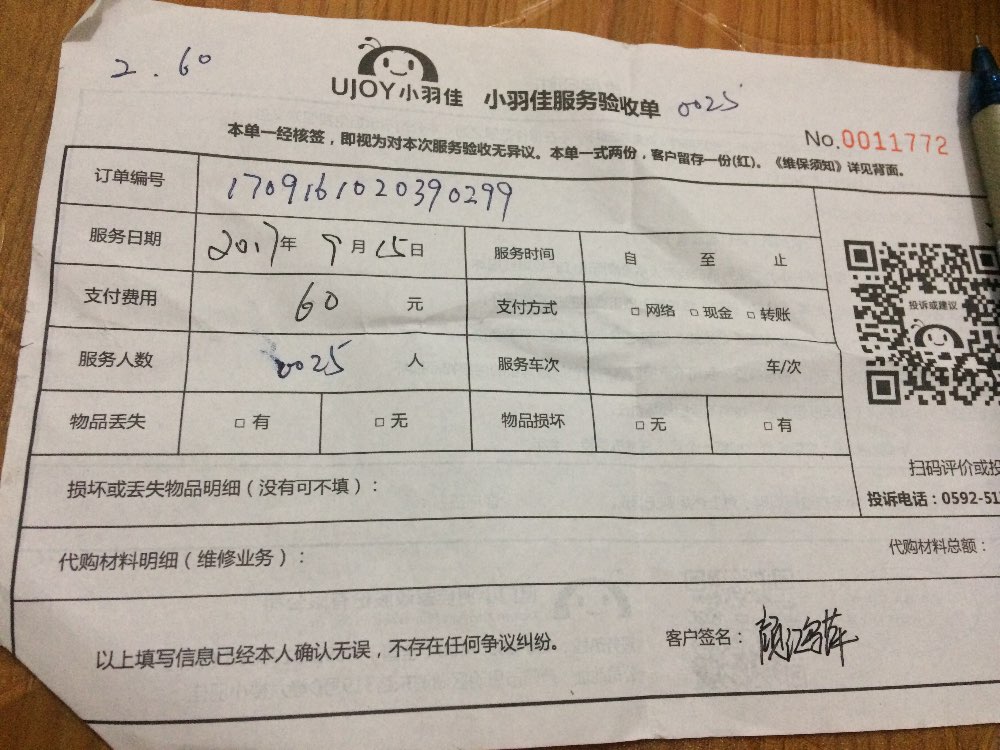 2.60
UJOY小羽佳 小羽佳服务验收单 0025
No.0011772
本单一经核签，即视为对本次服务验收无异议。本单一式两份，客户留存一份(红)。《维保须知》详见背面。
订单编号 1709161020390299
服务日期 2017年9月15日 服务时间 自 至 止
支付费用 60 元 支付方式 □网络 □现金 □转账
投诉或建议
服务人数 0025 人 服务车次 车/次
物品丢失 □有 □无 物品损坏 □无 □有
扫码评价或投
损坏或丢失物品明细（没有可不填）：
投诉电话：0592-51
代购材料明细（维修业务）：
代购材料总额：
以上填写信息已经本人确认无误，不存在任何争议纠纷。 客户签名：